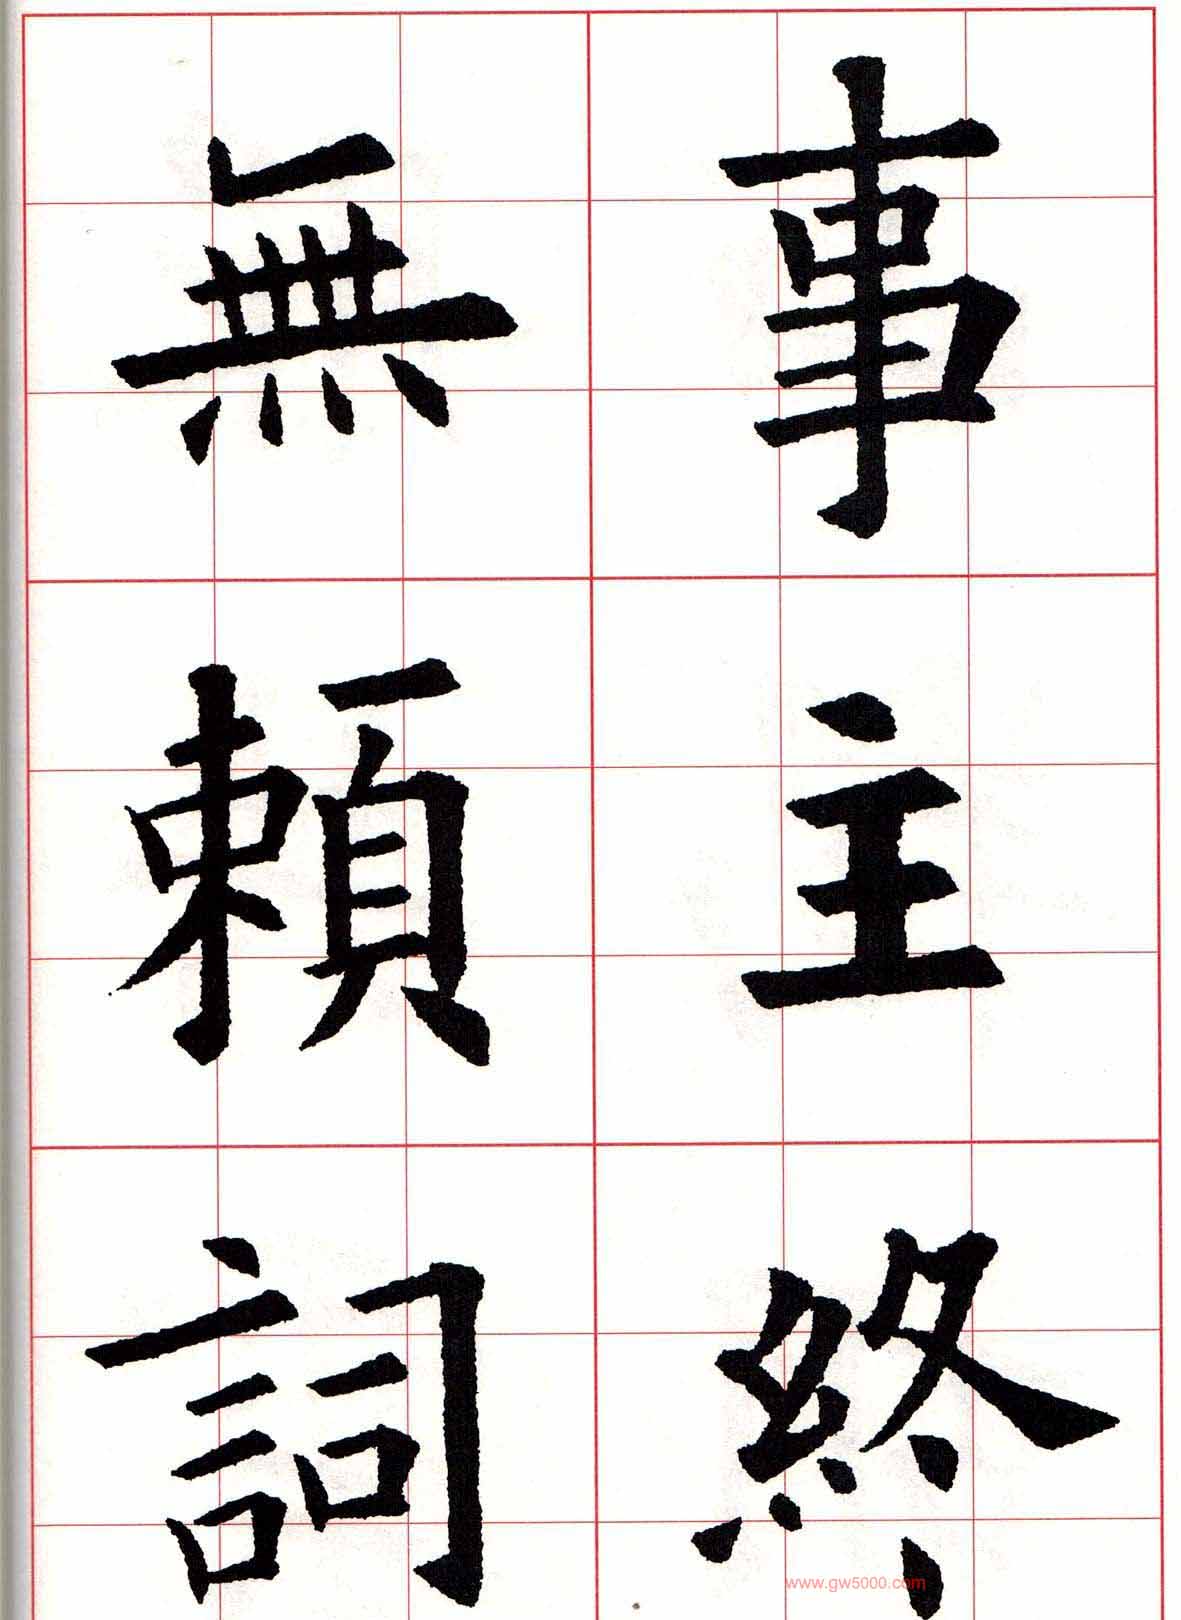 事主終
無頼詞
www.gw5000.com